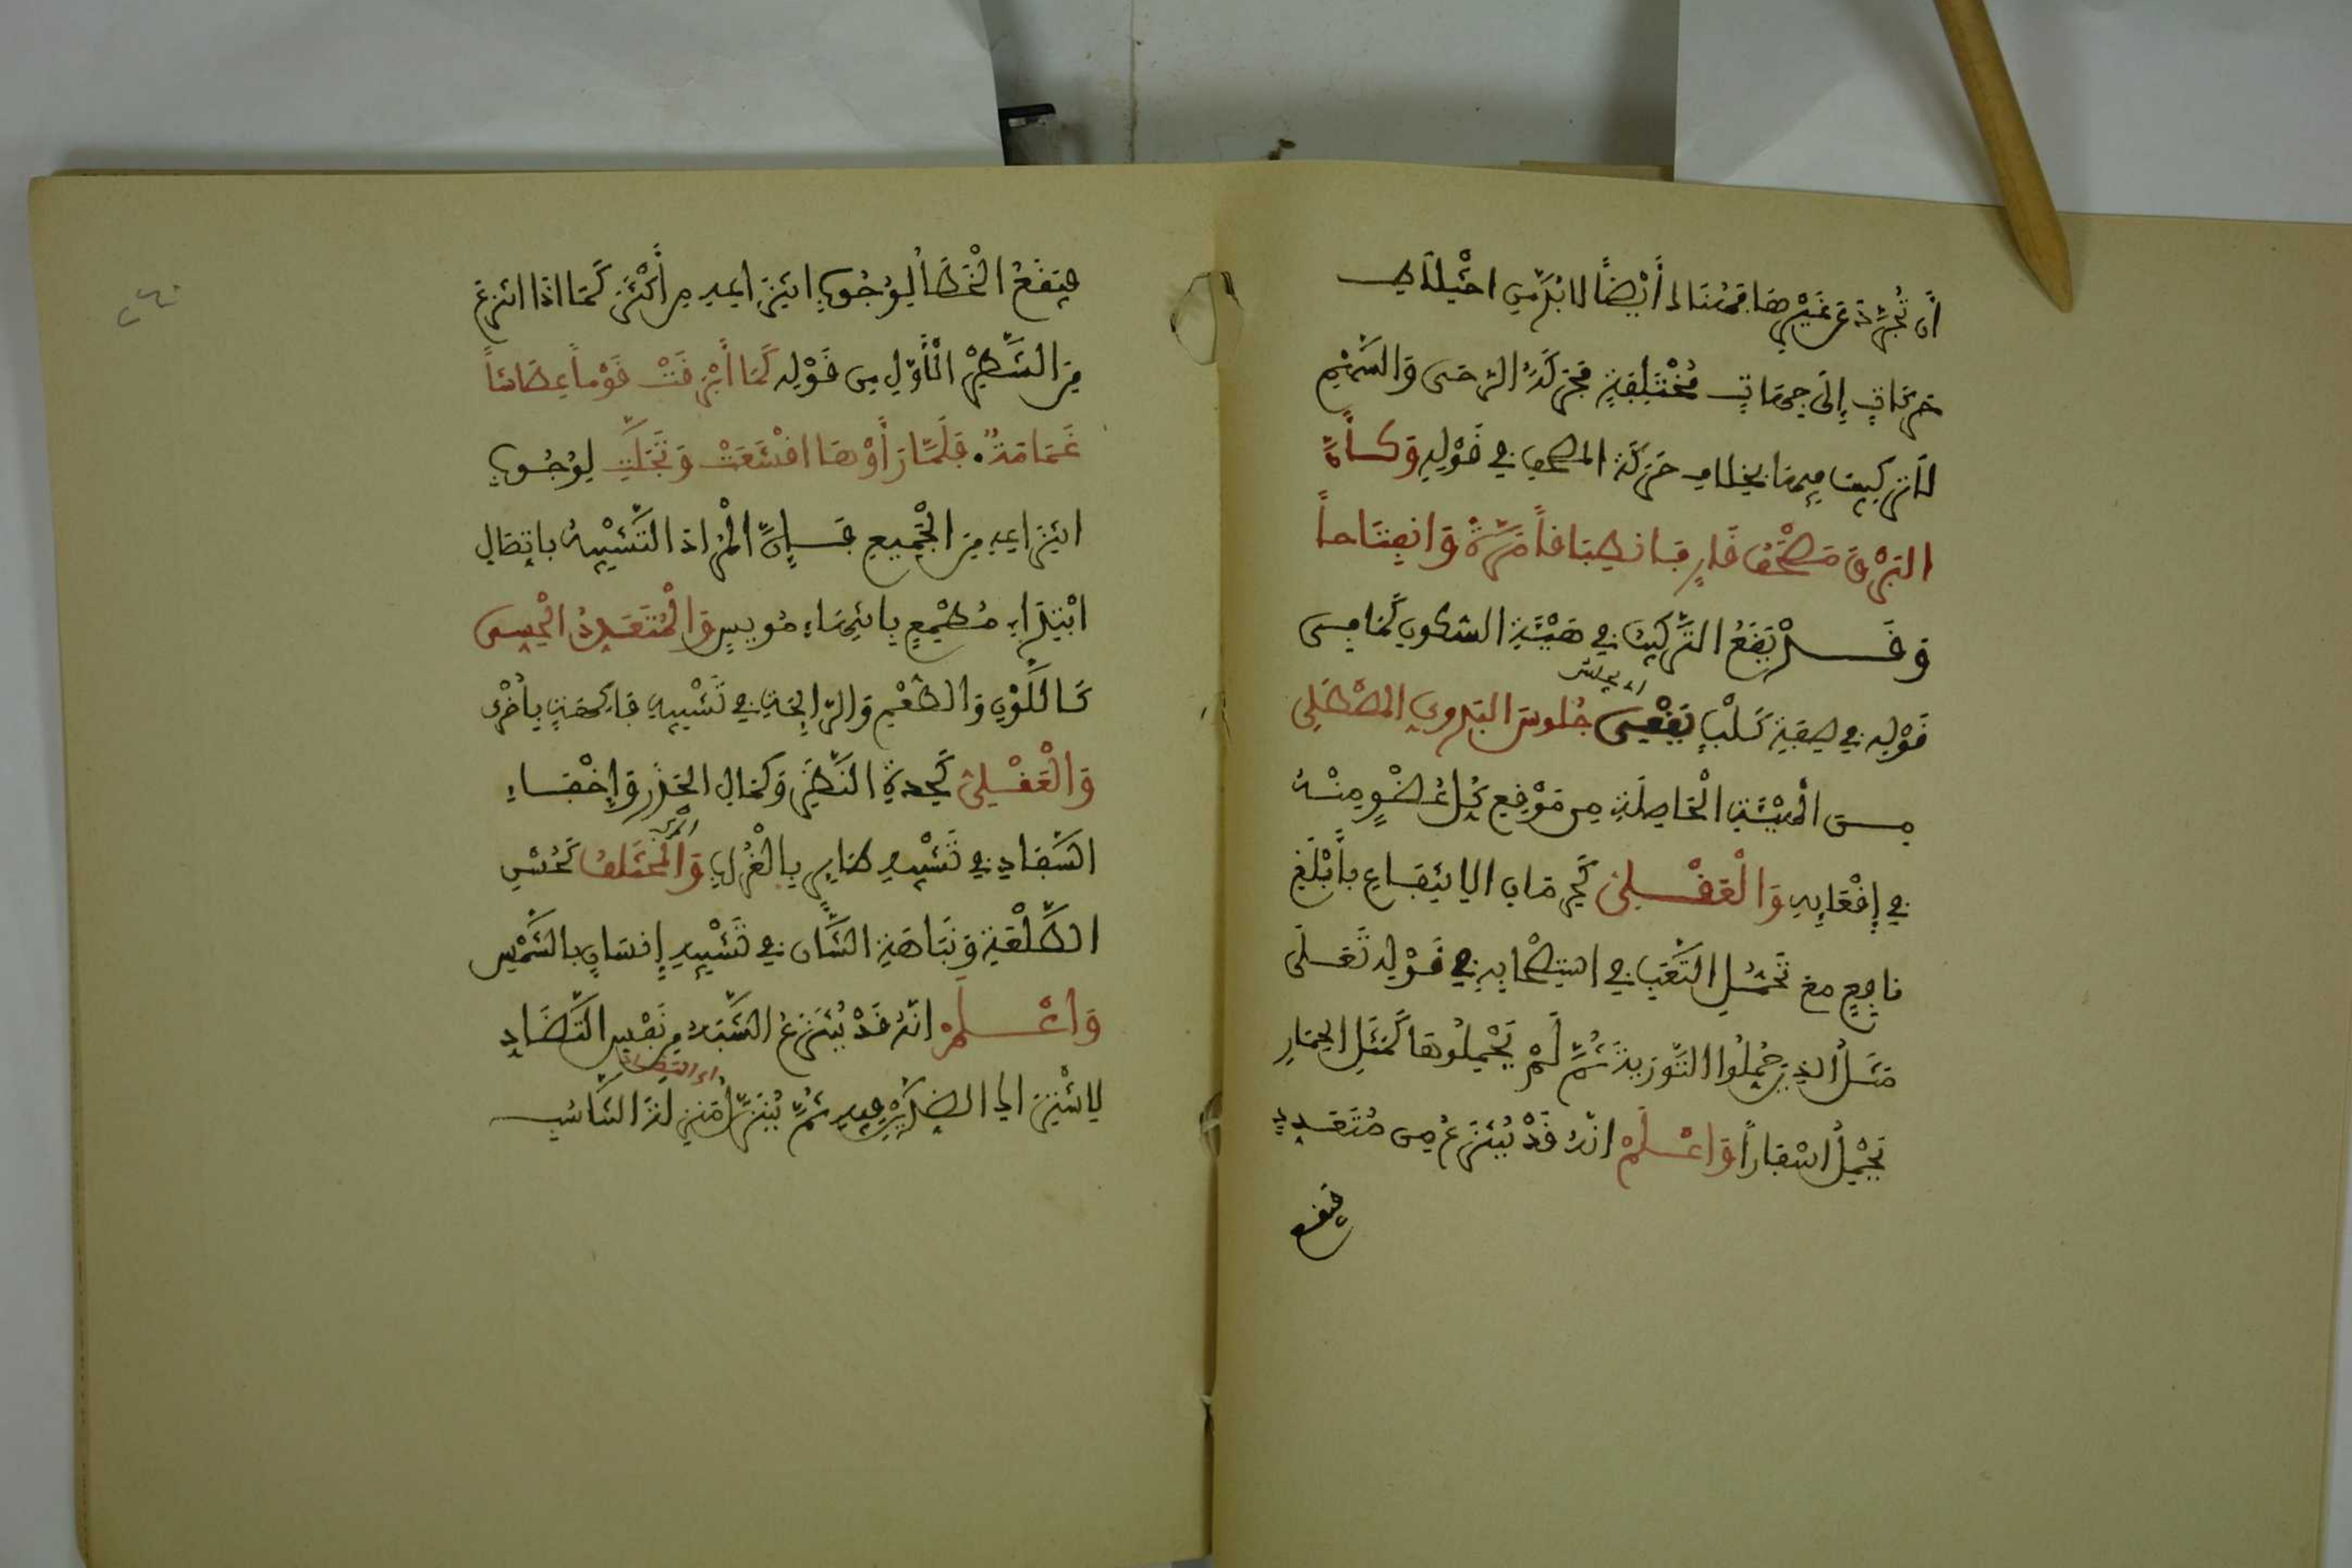 أَن تُجَرَّدَ عَن غَيْرِهَا فَهُنَالِكَ أَيْضًا لَا بُدَّ مِنِ اخْتِلَاطِ
حَرَكَاتٍ إِلَى جِهَاتٍ مُخْتَلِفَةٍ فَحَرَكَةُ الرَّحَى وَالسَّهْمِ
لَا تَرْكِيبَ فِيهِمَا بِخِلَافِ حَرَكَةِ الْمُصْحَفِ فِي قَوْلِهِ وَكَأَنَّ
الْبَرْقَ مُصْحَفُ قَارٍ فَانطِبَاقًا مَرَّةً وَانفِتَاحًا
وَقَدْ يَقَعُ التَّرْكِيبُ فِي هَيْئَةِ السُّكُونِ كَمَا فِي
قَوْلِهِ فِي صِفَةِ كَلْبٍ يُقْعِي جُلُوسَ الْبَدَوِيِّ الْمُصْطَلِي
اي يجلس
مِنَ الْهَيْئَةِ الْحَاصِلَةِ مِن مَوْقِعِ كُلِّ عُضْوٍ مِنْهُ
فِي إِقْعَائِهِ وَالْعَقْلِيُّ كَحِرْمَانِ الِانْتِفَاعِ بِأَبْلَغِ
نَافِعٍ مَعَ تَحَمُّلِ التَّعَبِ فِي اسْتِصْحَابِهِ فِي قَوْلِهِ تَعَلَى
مَثَلُ الذِينَ حُمِّلُوا التَّوْرَيةَ ثُمَّ لَمْ يَحْمِلُوهَا كَمَثَلِ الْحِمَارِ
يَحْمِلُ أَسْفَارًا وَاعْلَمْ انَّهُ قَدْ يُنْتَزَعُ مِن مُتَعَدِّدٍ
فيقع
فَيَقَعُ الْخَطَأُ لِوُجُوبِ انْتِزَاعِهِ مِن أَكْثَرَ كَمَا اذَا انتُزِعَ
مِنَ الشَّطْرِ الْأَوَّلِ مِن قَوْلِهِ كَمَا أَبْرَقَتْ قَوْمًا عِطَاشًا
غَمَامَةٌ. فَلَمَّا رَأَوْهَا اقْشَعَتْ وَتَجَلَّتِ لِوُجُوبِ
انْتِزَاعِهِ مِنَ الْجَمِيعِ فَإِنَّ الْمُرَادَ التَّشْبِيهُ بِاتِّصَالِ
ابْتِدَاءٍ مُطْمِعٍ بِانتِهَاءٍ مُويِسٍ وَالْمُتَعَدِّدُ الْحِسِّيُّ
كَاللَّوْنِ وَالطَّعْمِ وَالرَّائِحَةِ فِي تَشْبِيهِ فَاكِهَةٍ بِأُخْرَى
وَالْعَقْلِيُّ كَحِدَّةِ النَّظَرِ وَكَمَالِ الْحَذَرِ وَإِخْفَاءِ
السِّفَادِ فِي تَشْبِيهِ طَائِرٍ بِالْغُرَابِ وَالْمُخْتَلِفُ كَحُسْنِ
الطَّلْعَةِ وَنَبَاهَةِ الشَّأْنِ فِي تَشْبِيهِ إِنسَانٍ بِالشَّمْسِ
وَاعْلَمْ انَّهُ قَدْ يُنْتَزَعُ الشَّبَهُ مِن نَفْسِ التَّضَادِّ
اي التضاد
لِاشْتِرَاكِ الضِّدَّيْنِ فِيهِ ثُمَّ يُنَزَّلُ مَنزِلَةَ التَّنَاسُبِ